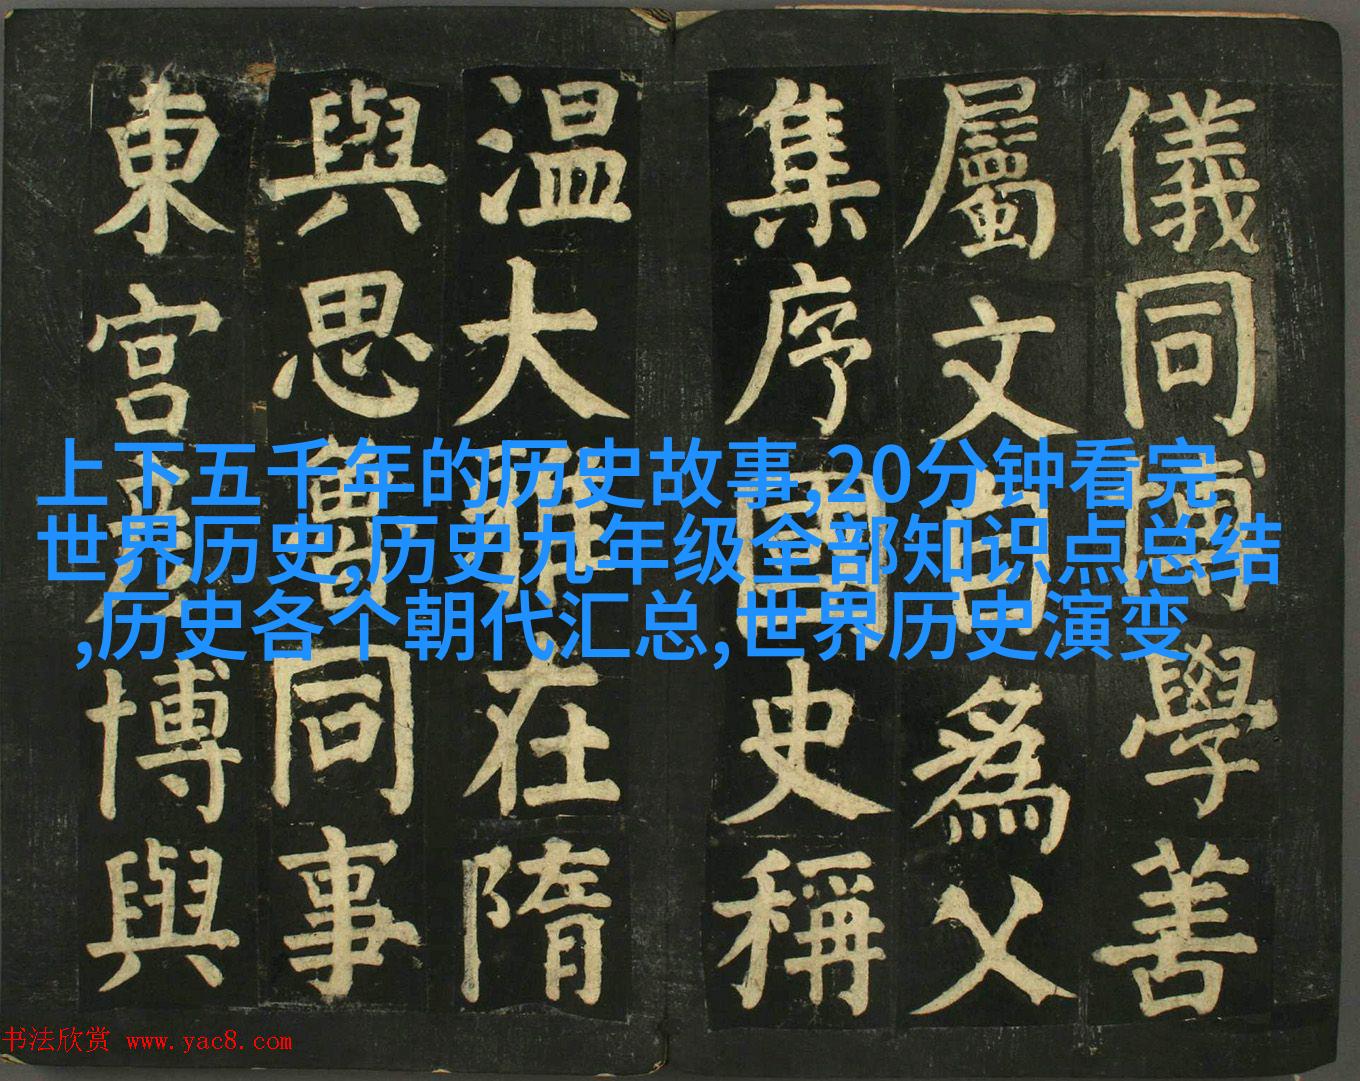 上下五千年的历史故事,20分钟看完
世界历史,历史九年级全部知识点总结
,历史各个朝代汇总,世界历史演变
儀同博學善
屬文尚為父
集序國史稱
温大雅在隋
與思魯同事
東宮彥博與
书法欣赏 www.yac8.com